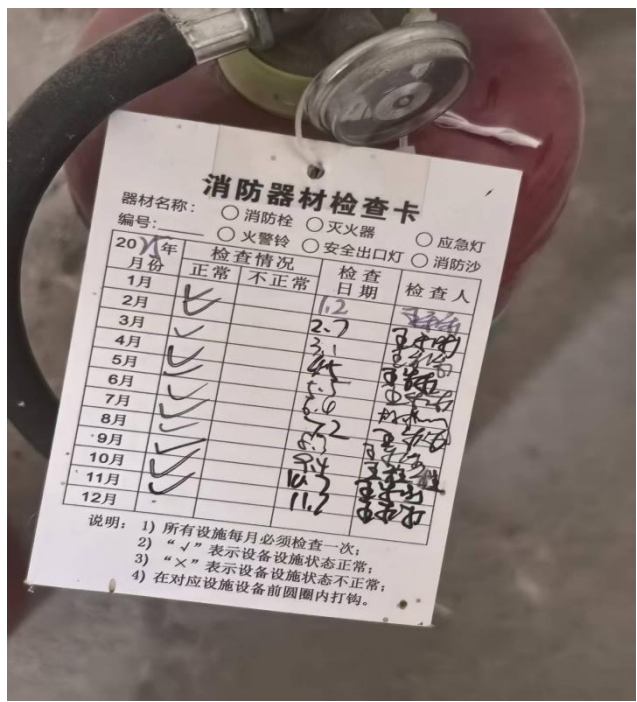 消防器材检查卡
器材名称： ○消防栓 ○灭火器 ○应急灯
编号:____ ○火警铃 ○安全出口灯 ○消防沙
20 年 检查情况 检查日期 检查人
月份 正常 不正常
1月 ✓ 1.2
2月 ✓ 2.7
3月 ✓ 3.1
4月 ✓ 4.5
5月 ✓ 5.5
6月 ✓ 6.6
7月 ✓ 7.2
8月 ✓
9月 ✓ 9.4
10月 ✓ 10.7
11月 ✓ 11.7
12月
说明： 1) 所有设施每月必须检查一次；
2) “√”表示设备设施状态正常；
3) “×”表示设备设施状态不正常；
4) 在对应设施设备前圆圈内打钩。